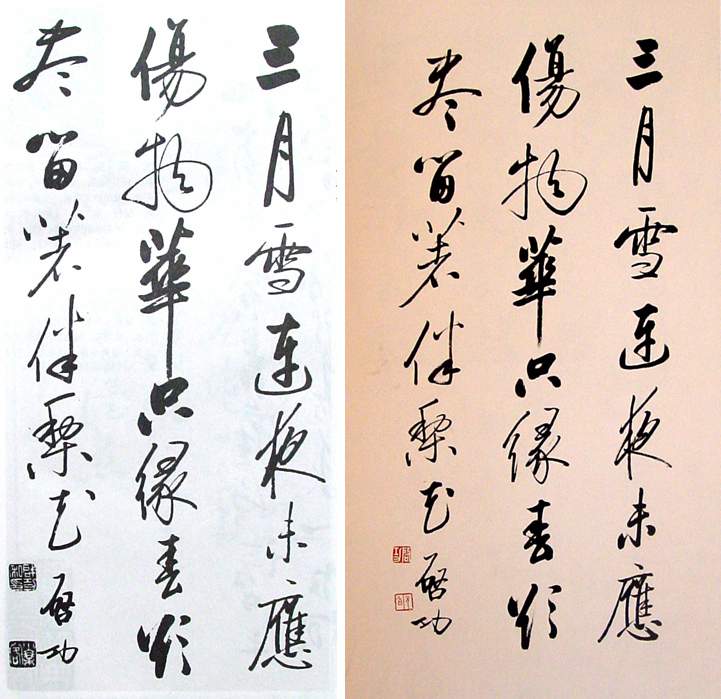 三月雪連夜未應
傷物華只緣春欲
盡留著伴梨花 啓功
三月雪連夜未應
傷物華只緣春欲
盡留著伴梨花 啓功